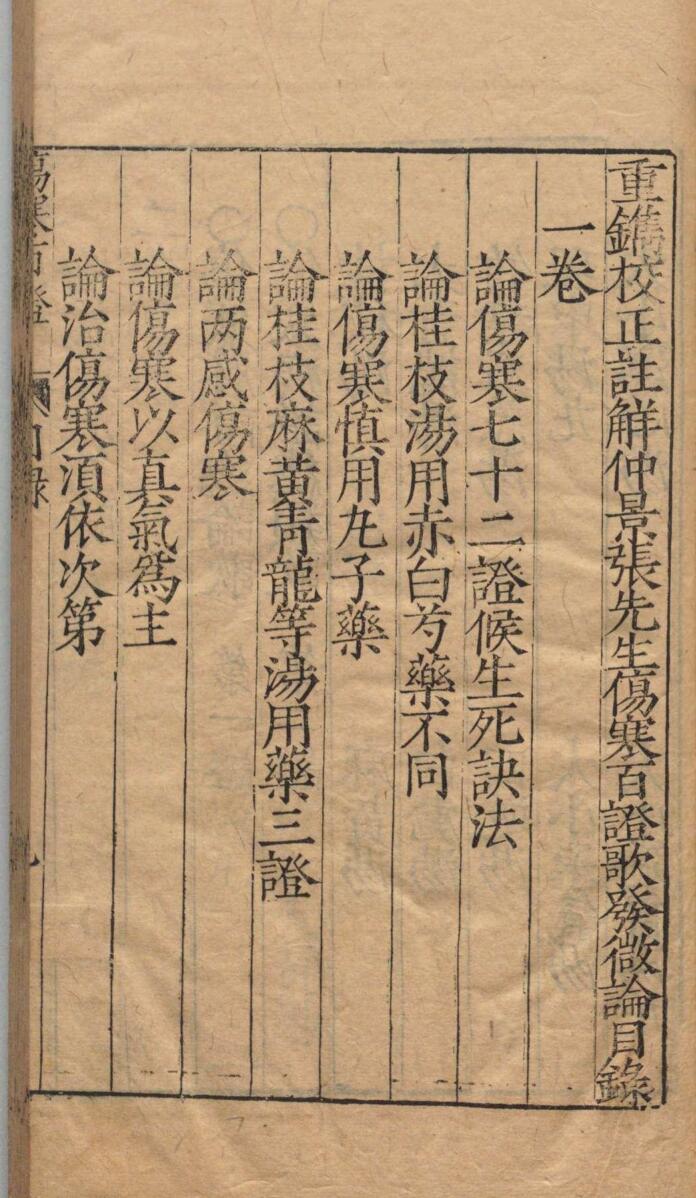 重鐫校正註解仲景張先生傷寒百證歌發微論目錄
一卷
論傷寒七十二證候生死訣法
論桂枝湯用赤白芍藥不同
論傷寒慎用丸子藥
論桂枝麻黃青龍等湯用藥三證
論两感傷寒
論傷寒以真氣爲主
論治傷寒須依次第
傷寒百證 目錄